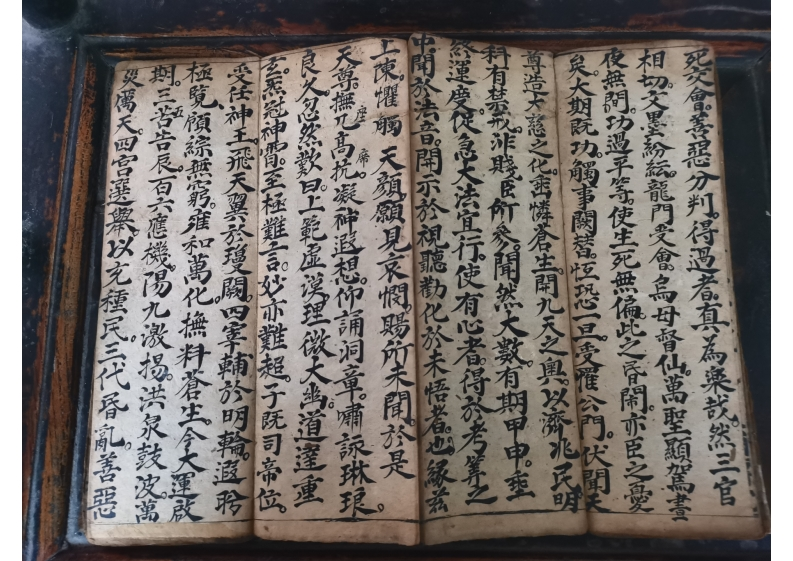 死交會善惡分判得過者真為樂哉然三官
相切文墨紛紜龍門受會烏母督仙萬聖顯駕晝
夜無閑功過平等使生死無偏此之昏鬧亦臣之憂
矣大期既功觸事闕替恒恐一旦受罹公門伏聞天
尊造大慈之化垂憐蒼生開九天之奧以濟兆民明
科有禁非賤臣所參聞然大數有期甲申垂
終運度促急大法宜行使有心者得於考筭之
中聞於法音開示於視聽勸化於未悟者也緣茲
上陳懼觸天顏願見哀憫賜所未聞於是
天尊撫几高抗座席凝神遐想仰誦洞章嘯詠琳琅
良久忽然歎曰上範虛漠理微大幽道達重
玄炁冠神霄至極難言妙亦難超子既司帝位
受任神王飛天翼於瓊闕四宰輔於明輪遐聆
極覽領綜無窮雍和萬化撫料蒼生今大運啟
期三五告辰百六應機陽九激揚洪泉鼓波萬
災厲天四宮選舉以充種民三代昏亂善惡